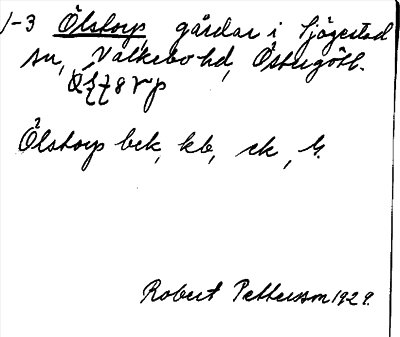 1-3 Ölstorp, gårdar i Sjögestad
sn, Valkebo hd, Östergötl.
Ölstorp bek, kb, ck, h.
Robert Pettersson 1929.